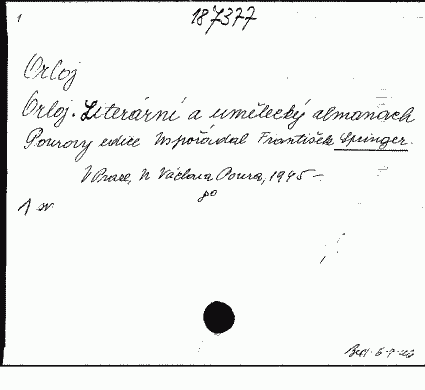 1
187377
Orloj
Orloj. Literární a umělecký almanach
Pourovy edice Uspořádal František Springer.
V Praze, N Václava Poura, 1945 –
80
1 sv